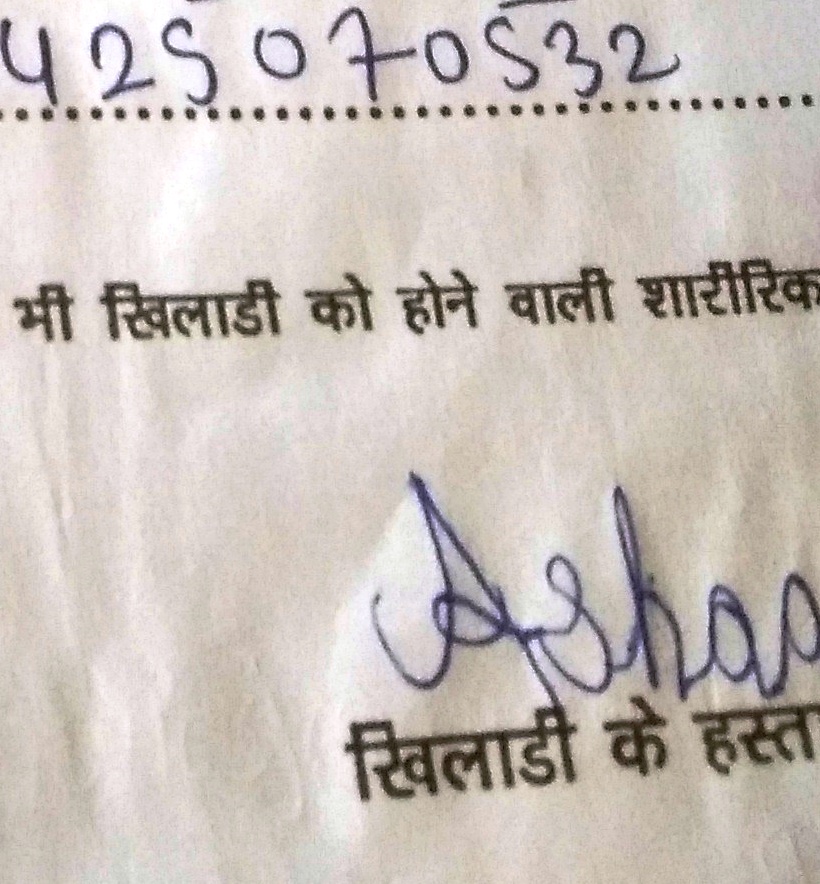 425070532
भी खिलाडी को होने वाली शारीरिक
खिलाडी के हस्ता